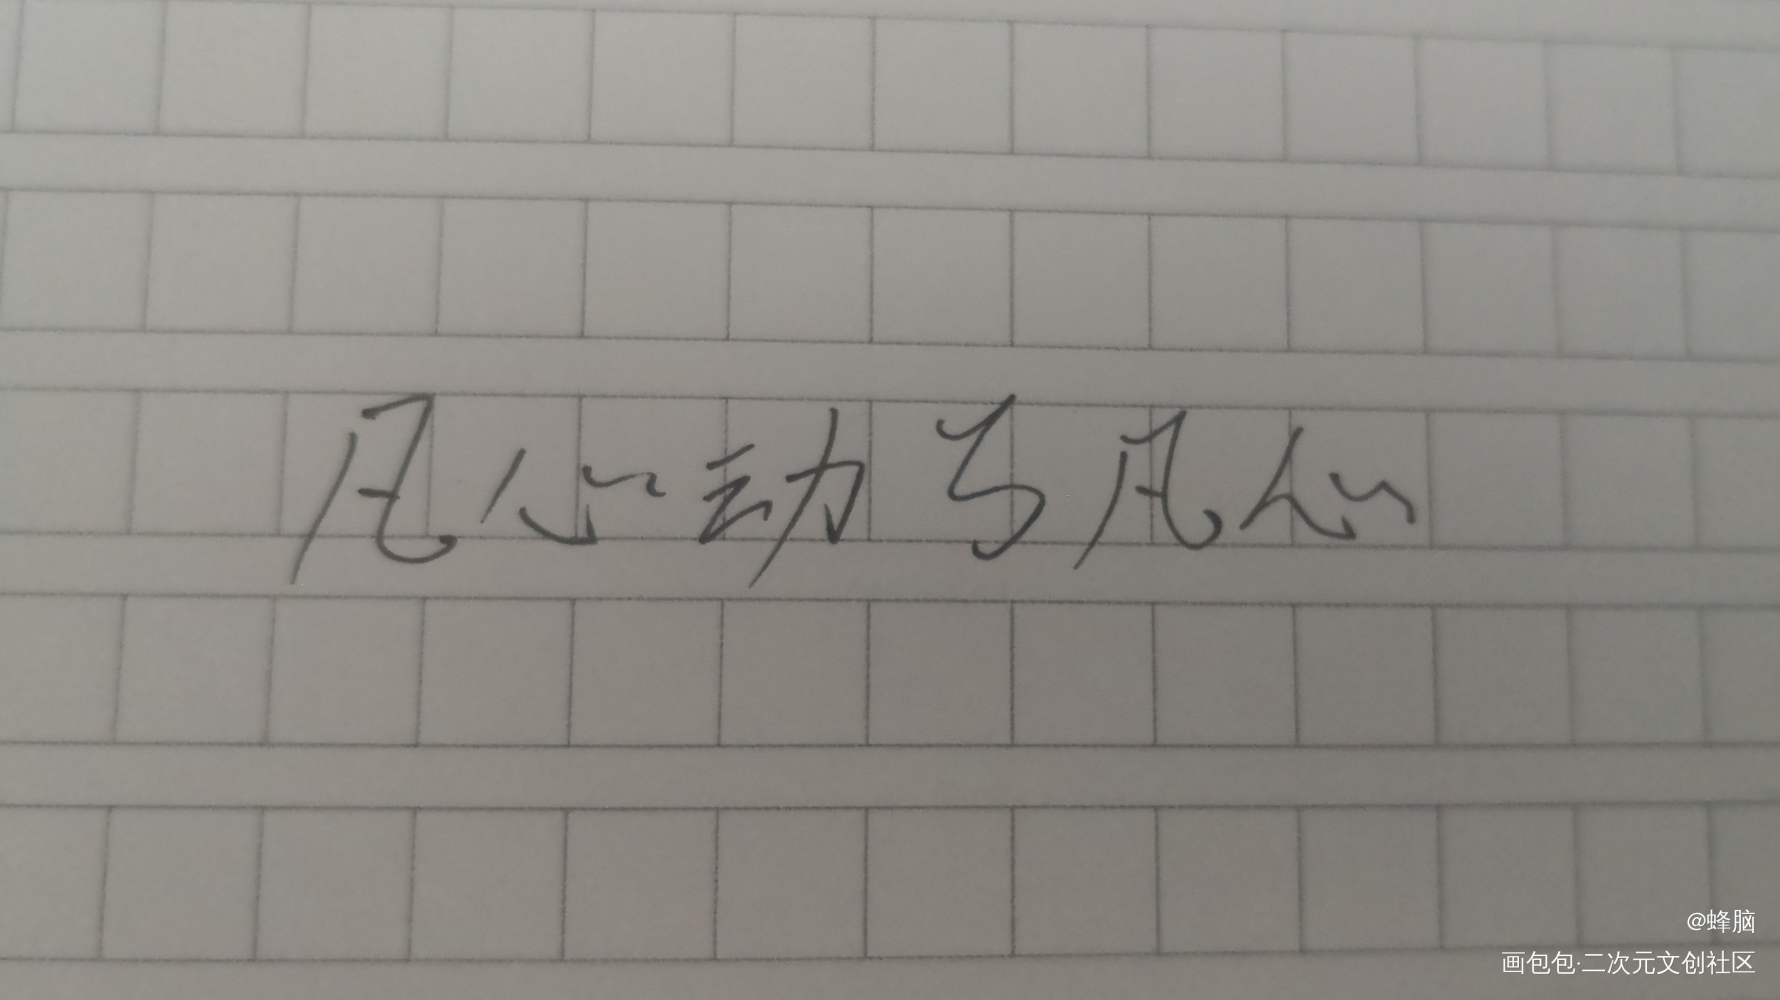 凡心动了凡心
@蜂脑
画包包·二次元文创社区